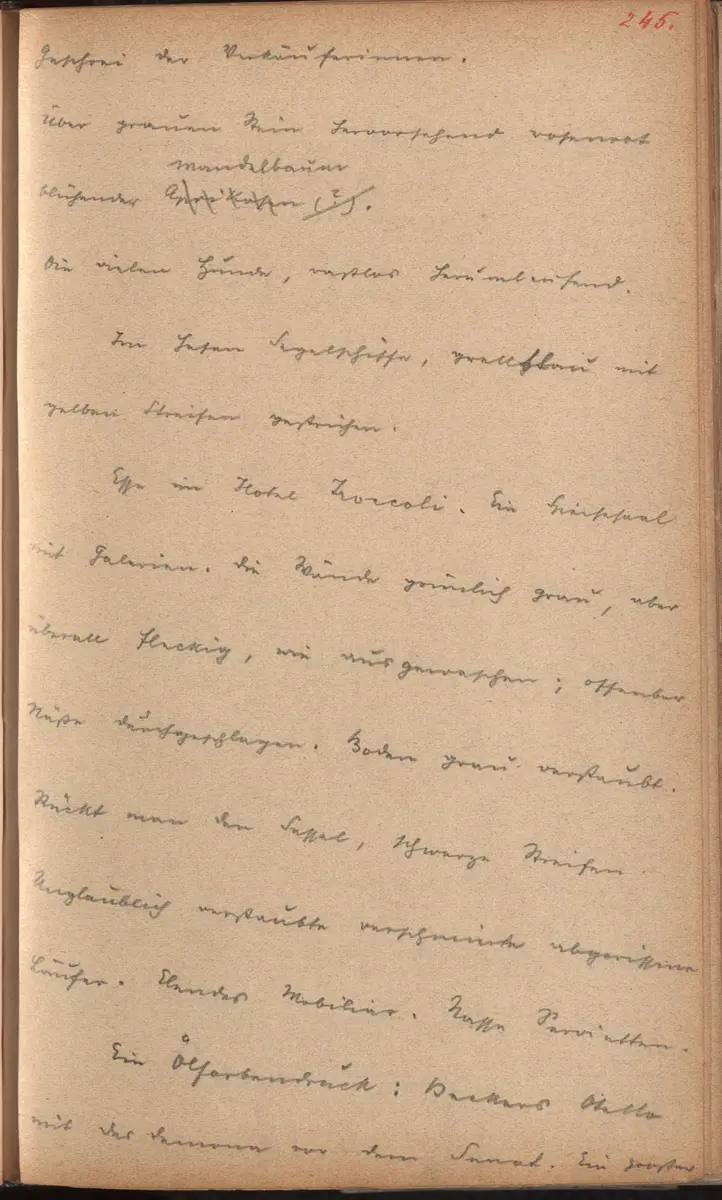 245.
Geschrei der Verkäuferinnen.
Über grauen Stein hervorsehend rosenrot
Mandelbaum
blühender Aprikosen (?).
Die vielen Hunde, rastlos herumlaufend.
Im Hafen Segelschiffe, grellblau mit
gelben Streifen gestrichen.
Esse im Hotel Zoccoli. Ein Speisesaal
mit Galerien. Die Wände grünlich grau, aber
überall fleckig, wie ausgewaschen; offenbar
Nässe durchgeschlagen. Boden grau verstaubt.
Rückt man den Sessel, schwarze Streifen.
Unglaublich verstaubte verschmierte abgerissene
Läufer. Elendes Mobiliar. Nasse Servietten.
Ein Ölfarbendruck: Beckers Otello
mit Desdemona vor dem Senat. Ein großer